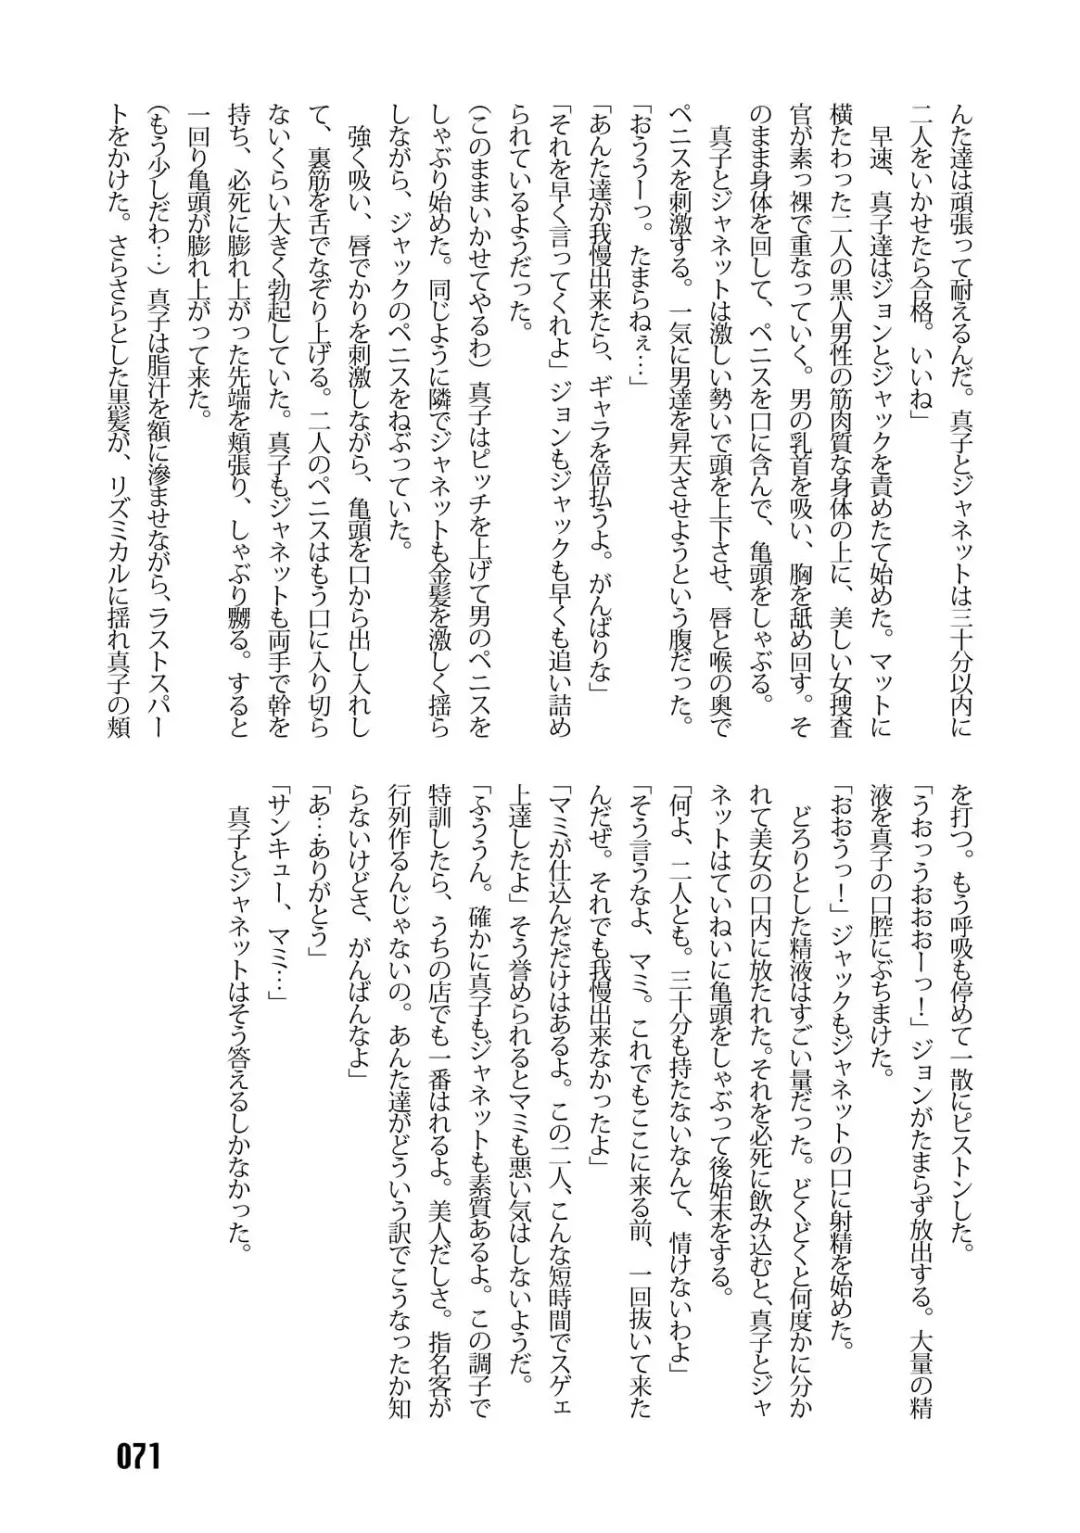 んた達は頑張って耐えるんだ。真子とジャネットは三十分以内に
二人をいかせたら合格。いいね」
早速、真子達はジョンとジャックを責めたて始めた。マットに
横たわった二人の黒人男性の筋肉質な身体の上に、美しい女捜査
官が素っ裸で重なっていく。男の乳首を吸い、胸を舐め回す。そ
のまま身体を回して、ペニスを口に含んで、亀頭をしゃぶる。
真子とジャネットは激しい勢いで頭を上下させ、唇と喉の奥で
ペニスを刺激する。一気に男達を昇天させようという腹だった。
「おううーっ。たまらねぇ…」
「あんた達が我慢出来たら、ギャラを倍払うよ。がんばりな」
「それを早く言ってくれよ」ジョンもジャックも早くも追い詰め
られているようだった。
(このままいかせてやるわ)真子はピッチを上げて男のペニスを
しゃぶり始めた。同じように隣でジャネットも金髪を激しく揺ら
しながら、ジャックのペニスをねぶっていた。
強く吸い、唇でかりを刺激しながら、亀頭を口から出し入れし
て、裏筋を舌でなぞり上げる。二人のペニスはもう口に入り切ら
ないくらい大きく勃起していた。真子もジャネットも両手で幹を
持ち、必死に膨れ上がった先端を頬張り、しゃぶり嬲る。すると
一回り亀頭が膨れ上がって来た。
(もう少しだわ…)真子は脂汗を額に滲ませながら、ラストスパー
トをかけた。さらさらとした黒髪が、リズミカルに揺れ真子の頬
を打つ。もう呼吸も停めて一散にピストンした。
「うおっうおおおーっ！」ジョンがたまらず放出する。大量の精
液を真子の口腔にぶちまけた。
「おおうっ！」ジャックもジャネットの口に射精を始めた。
どろりとした精液はすごい量だった。どくどくと何度かに分か
れて美女の口内に放たれた。それを必死に飲み込むと、真子とジャ
ネットはていねいに亀頭をしゃぶって後始末をする。
「何よ、二人とも。三十分も持たないなんて、情けないわよ」
「そう言うなよ、マミ。これでもここに来る前、一回抜いて来た
んだぜ。それでも我慢出来なかったよ」
「マミが仕込んだだけはあるよ。この二人、こんな短時間でスゲェ
上達したよ」そう誉められるとマミも悪い気はしないようだ。
「ふううん。確かに真子もジャネットも素質あるよ。この調子で
特訓したら、うちの店でも一番はれるよ。美人だしさ。指名客が
行列作るんじゃないの。あんた達がどういう訳でこうなったか知
らないけどさ、がんばんなよ」
「あ…ありがとう」
「サンキュー、マミ…」
真子とジャネットはそう答えるしかなかった。
071